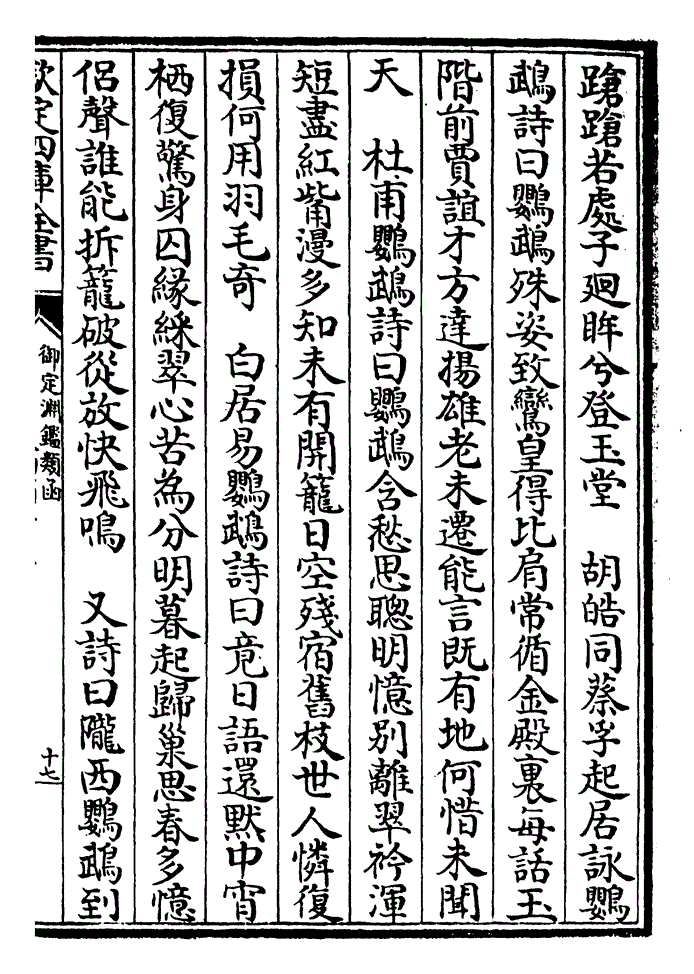 蹌蹌若處子廻眸兮登玉堂　胡皓同蔡孚起居詠鸚
鵡詩曰鸚鵡殊姿致鸞皇得比肩常循金殿裏毎話玉
階前賈誼才方達揚雄老未遷能言既有地何惜未聞
天　杜甫鸚鵡詩曰鸚鵡含愁思聰明憶别離翠衿渾
短盡紅觜漫多知未有開籠日空殘宿舊枝世人憐復
損何用羽毛奇　白居易鸚鵡詩曰竟日語還默中宵
栖復驚身囚緣綵翠心苦為分明暮起歸巢思春多憶
侣聲誰能拆籠破從放快飛鳴　又詩曰隴西鸚鵡到
欽定四庫全書
御定淵鑑類函
十七